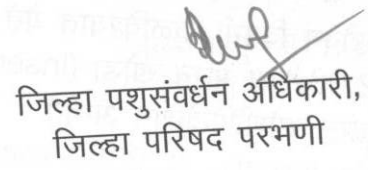 जिल्हा पशुसंवर्धन अधिकारी,
जिल्हा परिषद परभणी